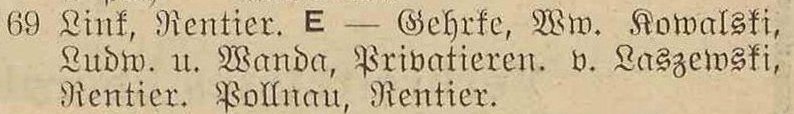 69 Link, Rentier. E — Gehrke, Ww. Kowalski,
Ludw. u. Wanda, Privatieren. v. Laszewski,
Rentier. Pollnau, Rentier.